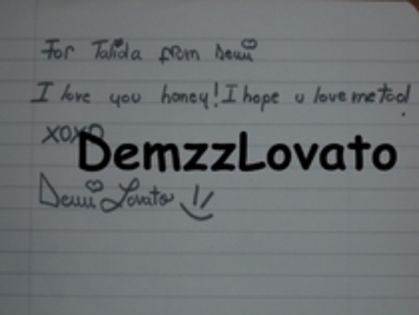 For Talida from Demi
I love you honey! I hope u love me too!
XOXO
DemzzLovato
Demi Lovato